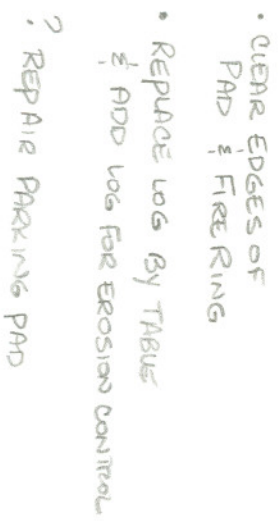 • CLEAR EDGES OF
PAD & FIRE RING
• REPLACE LOG BY TABLE
& ADD LOG FOR EROSION CONTROL
? REPAIR PARKING PAD